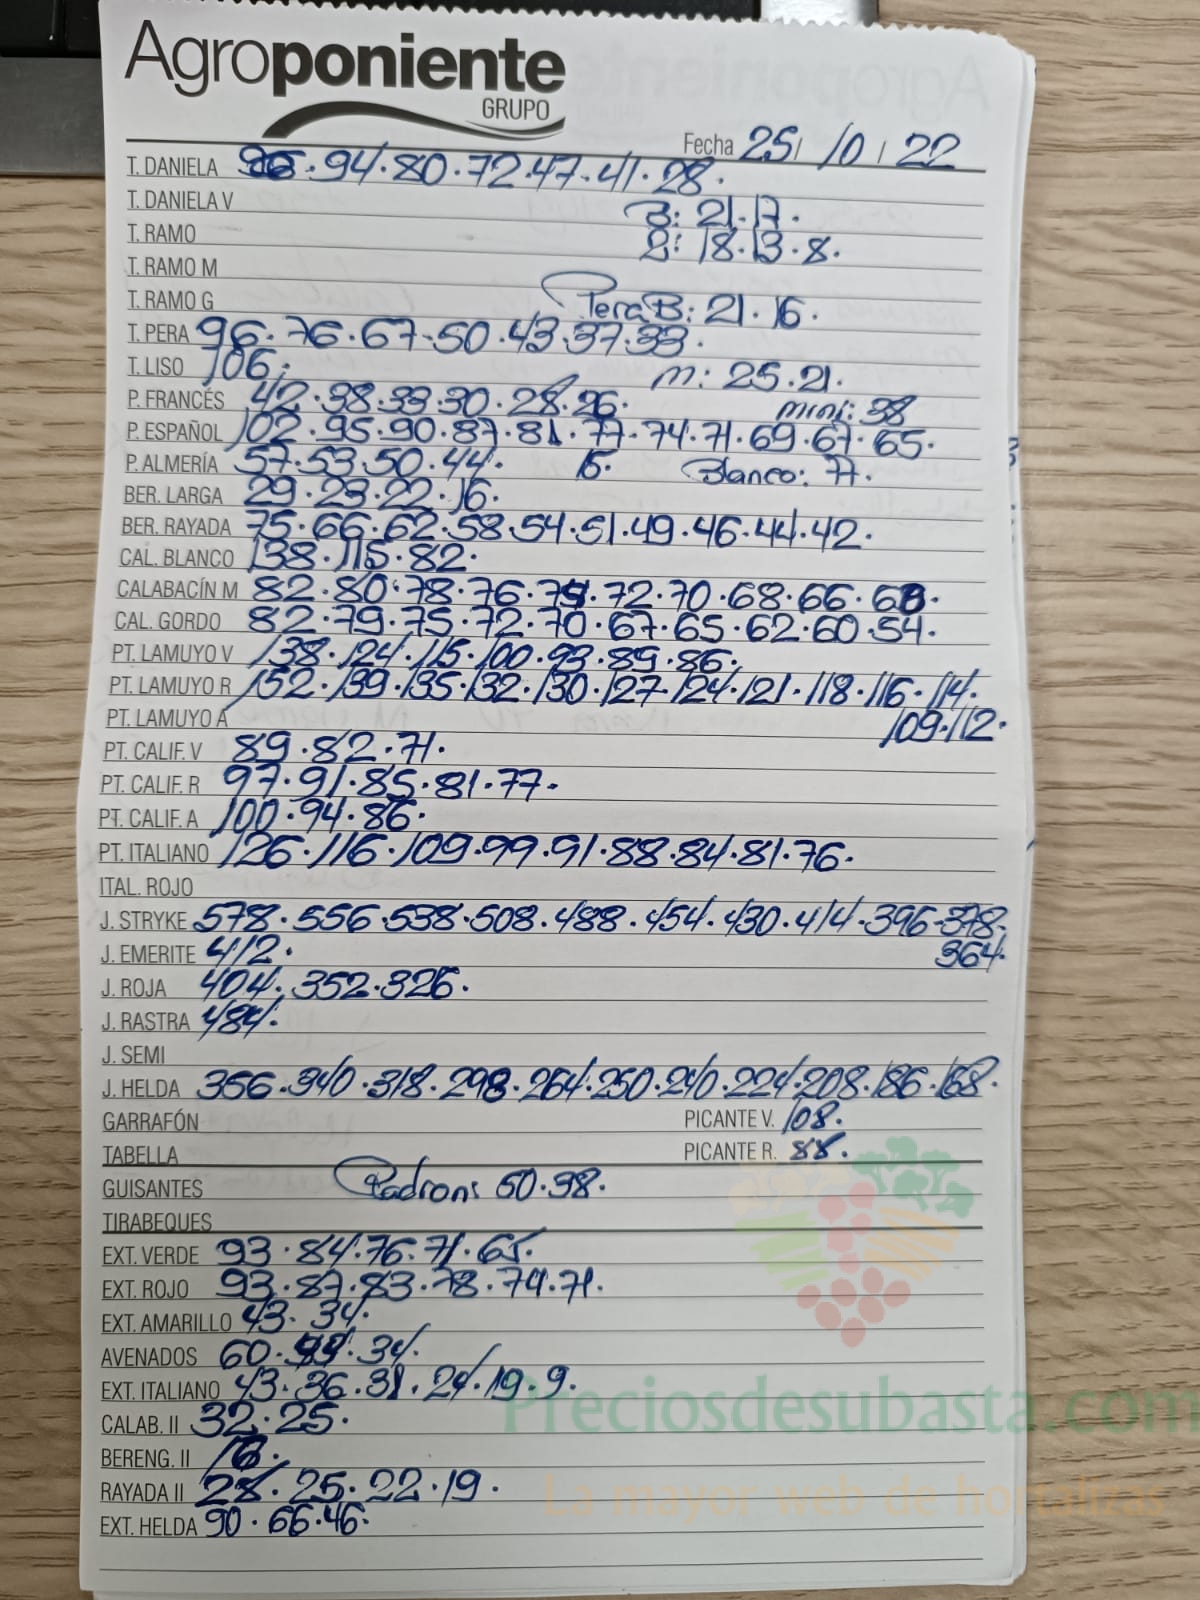 Agroponiente
GRUPO
Fecha 25/ 10 / 22
T. DANIELA 96.94.80.72.47.41.28.
T. DANELA V B: 21.17.
T. RAMO 2: 18.13.8.
T. RAMO M
T. RAMO G Pera B: 21.16.
T. PERA 96.76.67.50.43.37.33.
T. LISO 106. M: 25.21.
P. FRANCÉS 42.38.33.30.28.26. mini: 38
P. ESPAÑOL 102.95.90.87.81.77.74.71.69.67.65.
P. ALMERÍA 57.53.50.44. 15. Blanco: 77.
BER. LARGA 29.23.22.16.
BER. RAYADA 75.66.62.58.54.51.49.46.44.42.
CAL. BLANCO 138.115.82.
CALABACÍN M 82.80.78.76.74.72.70.68.66.63.
CAL. GORDO 82.79.75.72.70.67.65.62.60.54.
PT. LAMUYO V 138.124.115.100.93.89.86.
PT. LAMUYO R 152.139.135.132.130.127.124.121.118.116.114.
PT. LAMUYO A 109.112.
PT. CALIF. V 89.82.71.
PT. CALIF. R 97.91.85.81.77.
PT. CALIF. A 100.94.86.
PT. ITALIANO 126.116.109.99.91.88.84.81.76.
ITAL. ROJO
J. STRYKE 578.556.538.508.488.454.430.414.396.378.
J. EMERITE 412. 364.
J. ROJA 404.352.326.
J. RASTRA 484.
J. SEMI
J. HELDA 356.340.318.298.264.250.240.224.208.186.168.
GARRAFÓN PICANTE V. 108.
TABELLA PICANTE R. 88.
GUISANTES Padron: 60.98.
TIRABEQUES
EXT. VERDE 93.84.76.71.65.
EXT. ROJO 93.87.83.78.74.71.
EXT. AMARILLO 43.34.
AVENADOS 60. 34.
EXT. ITALIANO 43.36.31.24.19.9.
CALAB. II 32.25.
BERENG. II
RAYADA II 28.25.22.19.
EXT. HELDA 90.66.46.
Preciosdesubasta.com
La mayor web de hortalizas